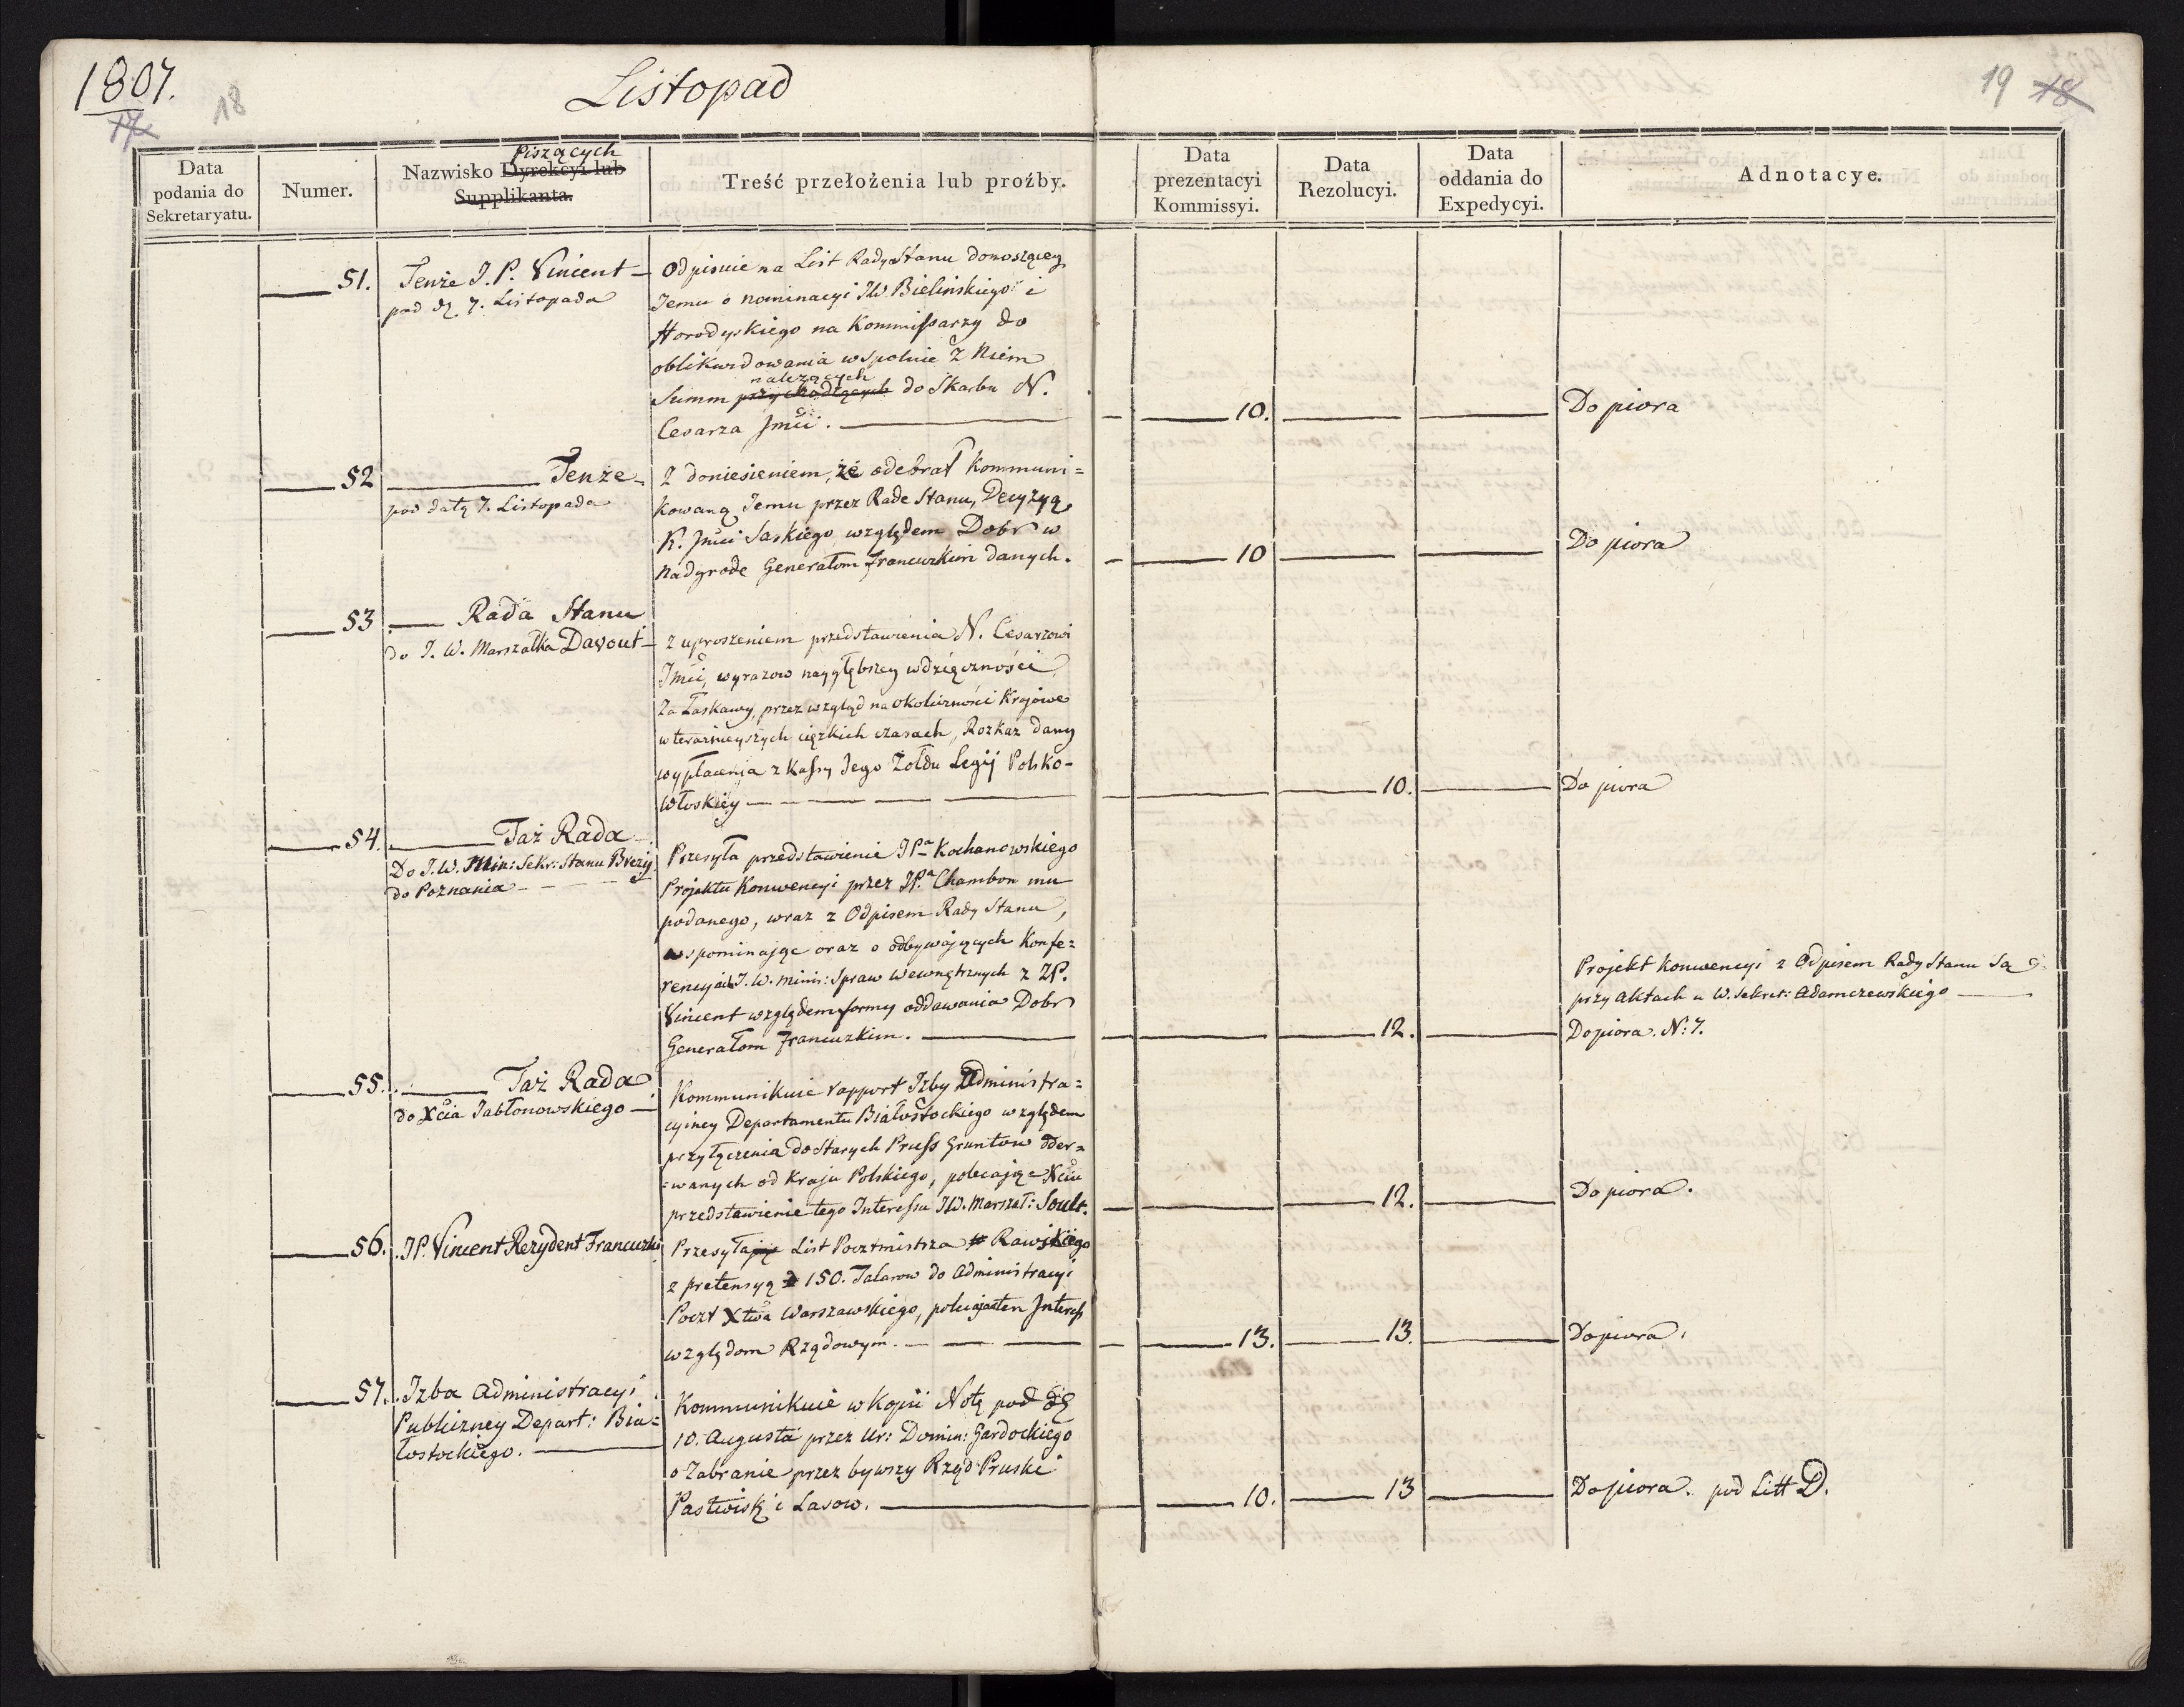 1807.
17
18
Listopad
19 18
Data podania do Sekretaryatu.
Numer.
Nazwisko Dyrekcyi lub Supplikanta.
Piszących
Treść przełożenia lub proźby.
Data prezentacyi Kommissyi.
Data Rezolucyi.
Data oddania do Expedycyi.
Adnotacye.
51. Tenże J. P. Vincent
pod dą 7. Listopada
Odpisuie na List Rady Stanu donoszącey
Jemu o nominacyi JW. Bielinskiego i
Horodyskiego na Kommissarzy do
oblikwidowania wspolnie z Niem
należących
Summ przychodzących do Skarbu N.
Cesarza Jmci.
10.
Do piora
52 Tenże
pod datą 7. Listopada
Z doniesieniem, że odebrał Kommuni=
kowaną Jemu przez Rade Stanu, Decyzyą
K. Jmci Saskiego względem Dobr w
nadgrode Generałom Francuzkim danych.
10
Do piora
53 Rada Stanu
do J. W. Marszałka Davout
z uproszeniem przedstawienia N. Cesarzowi
Jmci, wyrazow naygłębszey wdzięczności
za Łaskawy, przez wzgląd na okoliczności Krajowe
w teraźnieyszych ciężkich czasach, Rozkaz dany
wypłacenia z Kassy Jego Żołdu Legij Polsko-
Włoskiey
10.
Do piora
54. Taż Rada
Do J. W. Min: Sekr: Stanu Brezy
do Poznania
Przesyła przedstawienie JPa Kochanowskiego
Projektu Konwencyi przez JP.a Chambon mu
podanego, wraz z Odpisem Rady Stanu,
wspominając oraz o odbywających Konfe=
rencyiach J. W. Minis: Spraw Wewnętrznych z JP.
Vincent względem formy oddawania Dobr
Generałom Francuzkim.
12.
Projekt Konwencyi z Odpisem Rady Stanu Są
przy Aktach u W. Sekret: Adamczewskiego
Do piora. N: 7.
55. Taż Rada
do Xcia Jabłonowskiego
Kommunikuie rapport Izby Administra=
cyiney Departamentu Białostockiego względem
przyłączenia do Starych Pruss Gruntow oder=
=wanych od Kraju Polskiego, polecając Xciu
przedstawienie tego Interessu JW. Marszał: Soult.
12.
Do piora.
56. JP. Vincent Rezydent Francuzki
Przesyła List Pocztmistrza Rawskiego
z pretensyą 150. Talarow do Administracyi
Poczt Xtwa Warszawskiego, polecając ten Interess
względom Rządowym.
13.
13.
Do piora.
57. Izba Administracyi
Publiczney Depart: Bia=
łostockiego.
Kommunikuie w Kopii Notę pod dą
10. Augusta przez Ur: Domin: Gardockiego
o Zabranie przez bywszy Rząd Pruski
Pastwisk i Lasow.
10.
13
Do piora. pod Litt D.